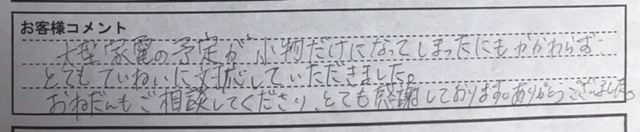 お客様コメント
大型家電の予定が小物だけになってしまったにもかかわらず
とてもていねいに対応していただきました。
おねだんもご相談してくださり、とても感謝しております。ありがとうございました。